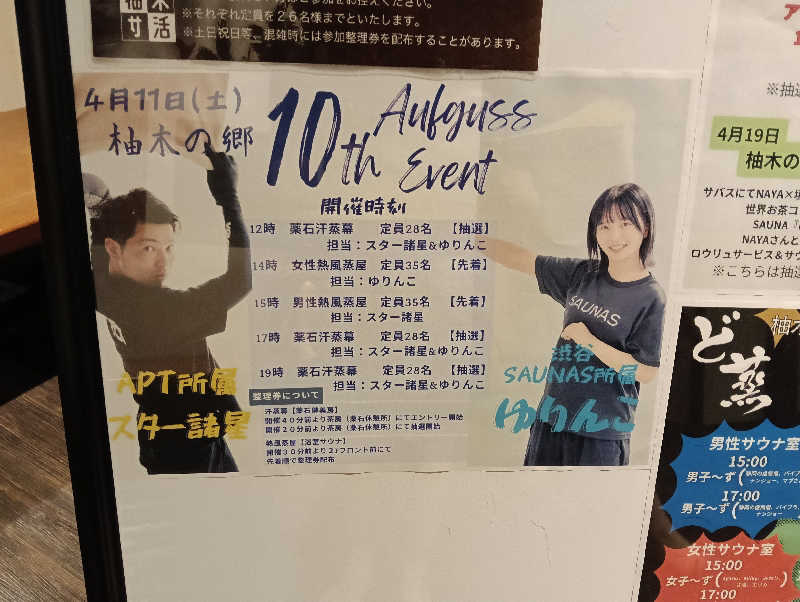 柚木
サ活
※それぞれ定員を26名様までといたします。
※土日祝日等、混雑時には参加整理券を配布することがあります。
4月11日(土)
柚木の郷
10th
Aufguss
Event
開催時刻
12時 薬石汗蒸幕 定員28名 【抽選】
担当：スター諸星&ゆりんこ
14時 女性熱風蒸屋 定員35名 【先着】
担当：ゆりんこ
15時 男性熱風蒸屋 定員35名 【先着】
担当：スター諸星
17時 薬石汗蒸幕 定員28名 【抽選】
担当：スター諸星&ゆりんこ
19時 薬石汗蒸幕 定員28名 【抽選】
担当：スター諸星&ゆりんこ
整理券について
汗蒸幕【薬石健美房】
開催40分前より茶房（薬石休憩所）にてエントリー開始
開催20分前より茶房（薬石休憩所）にて抽選開始
熱風蒸屋【浴室サウナ】
開催30分前より2Fフロント前にて
先着順で整理券配布
APT所属
スター諸星
SAUNAS
渋谷
SAUNAS所属
ゆりんこ
※抽選
4月19日
柚木の
サバスにてNAYA×
世界お茶コ
SAUNA
NAYAさんと
ロウリュサービス&サウ
※こちらは抽選
ど蒸
柚木
男性サウナ室
15:00
男子〜ず
17:00
男子〜ず
女性サウナ室
15:00
女子〜ず
17:00